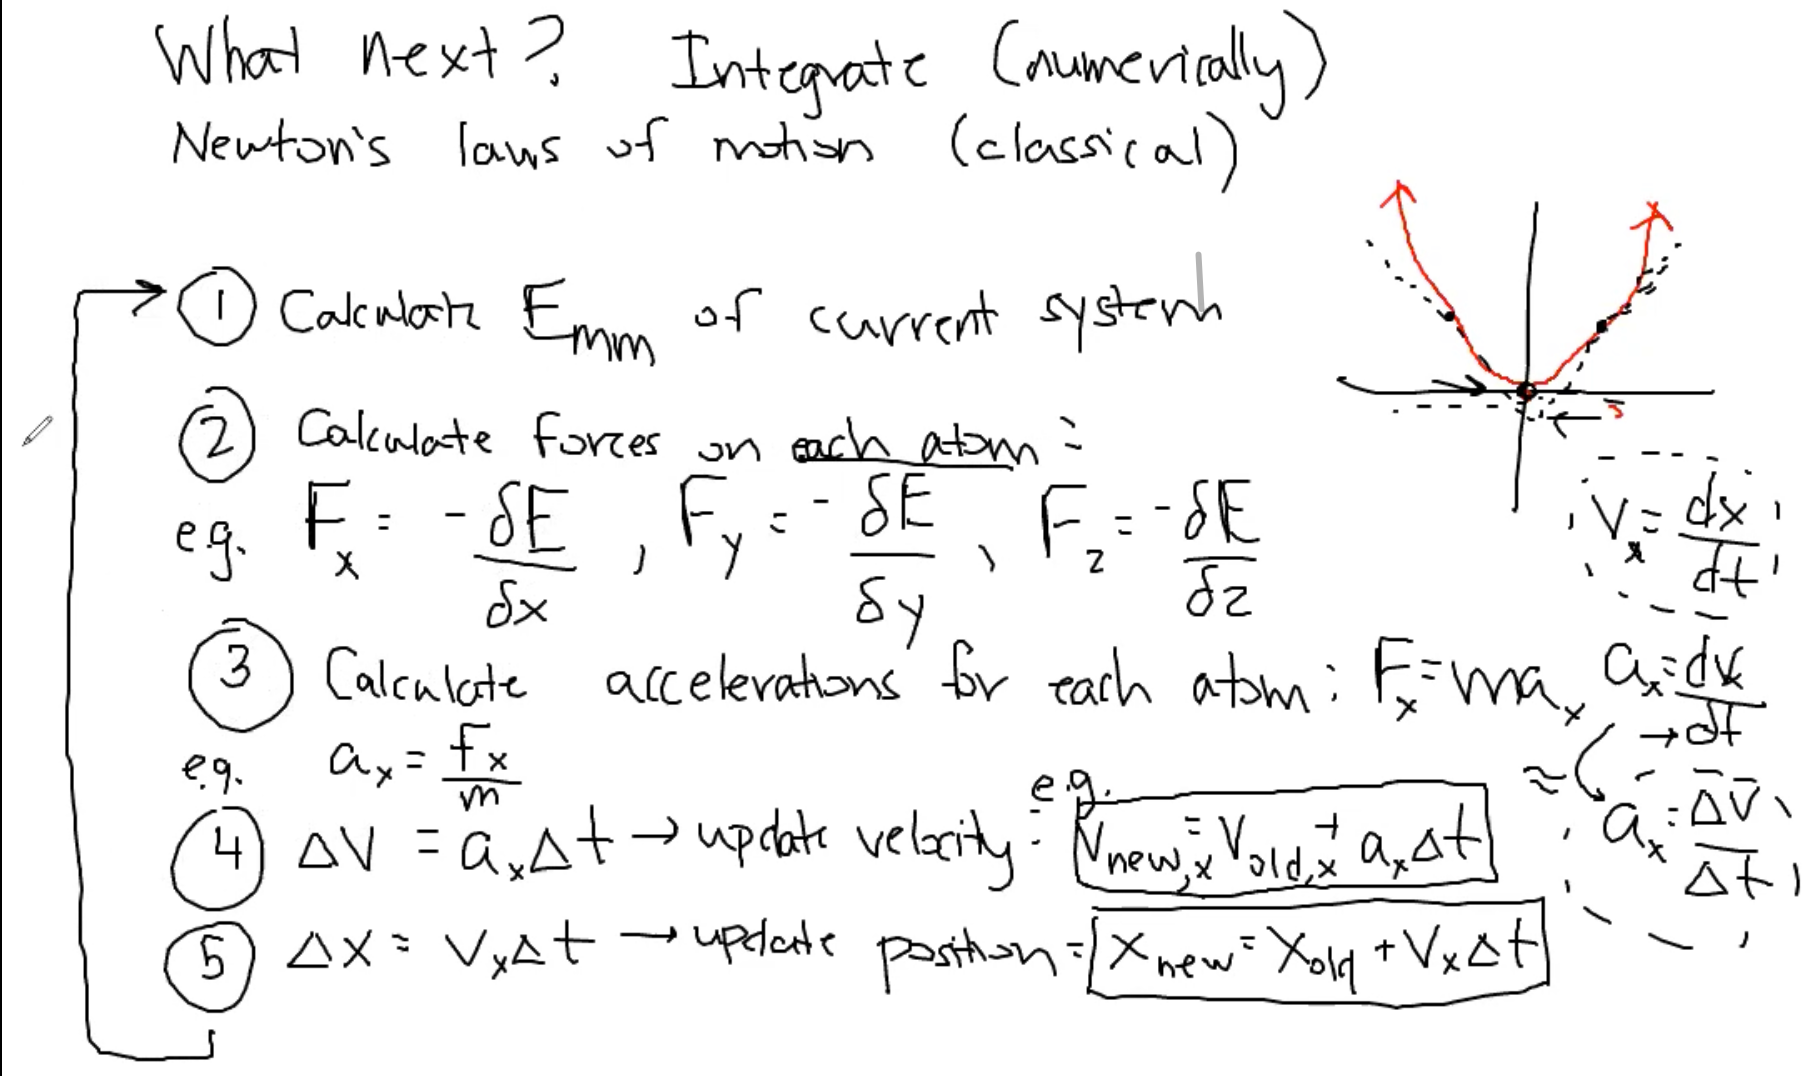 What next? Integrate (numerically)
Newton's laws of motion (classical)
① Calculate E_mm of current system
② Calculate forces on each atom:
e.g. F_x = -δE/δx , F_y = -δE/δy , F_z = -δE/δz
V_x = dx/dt
③ Calculate accelerations for each atom: F_x = ma_x
a_x = dv/dt
e.g. a_x = f_x/m
④ ΔV = a_xΔt → update velocity: e.g. V_new,x = V_old,x + a_xΔt
≈ a_x = ΔV/Δt
⑤ Δx = V_xΔt → update position: x_new = x_old + V_xΔt